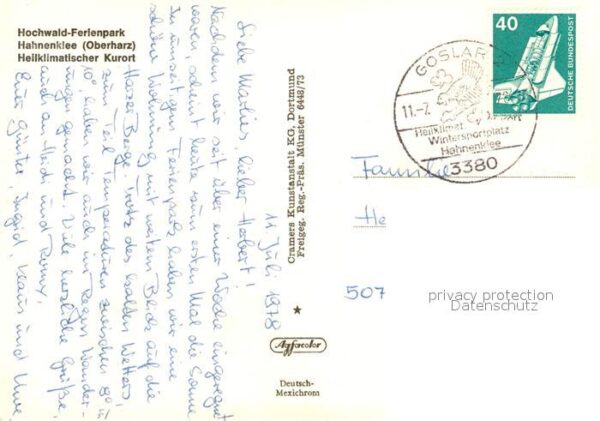 Hochwald-Ferienpark
Hahnenklee (Oberharz)
Heilklimatischer Kurort
11. Juli 1978
Liebe Marlies, lieber Herbert!
Nachdem wir seit über einer Woche eingeregnet
waren, scheint heute zum ersten Mal die Sonne.
In unserem Ferienpark haben wir eine
schöne Wohnung mit weitem Blick auf die
Harzer Berge. Trotz des kalten Wetters,
zum Teil Temperaturen zwischen 8° u.
10°, haben wir auch im Regen Wander-
ungen gemacht. Viele herzliche Grüße,
auch an Heidi und Romy,
Eure Günter, Ingrid, Klaus und Uwe
Cramers Kunstanstalt KG, Dortmund
Freigeg. Reg.-Präs. Münster 6448/73
Agfacolor
Deutsch-
Mexichrom
40
DEUTSCHE BUNDESPOST
GOSLAR
11.-7.
Heilklimat. Kurort
Wintersportplatz
Hahnenklee
3380
Familie
He
507
privacy protection
Datenschutz